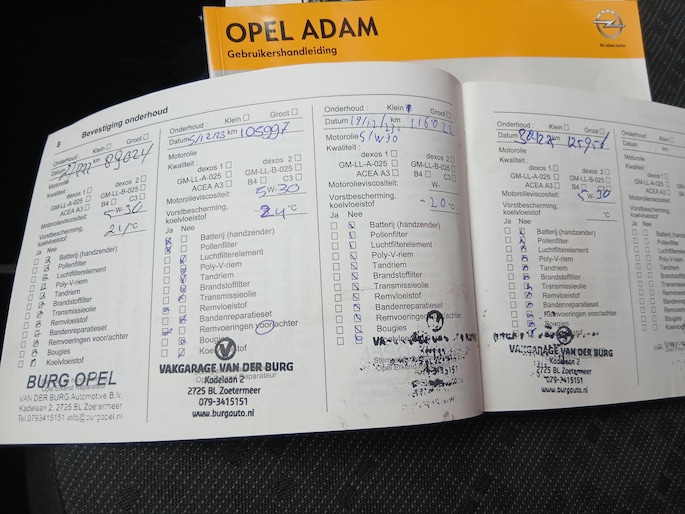 OPEL ADAM
Gebruikershandleiding
8 Bevestiging onderhoud
Onderhoud : Klein Groot
Datum km 89024
Motorolie
Kwaliteit :
dexos 1 dexos 2
GM-LL-A-025 GM-LL-B-025
ACEA A3 B4 C3
Motorolieviscositeit: 5 W- 30
Vorstbescherming,
koelvloeistof 21 °C
Ja Nee
Batterij (handzender)
Pollenfilter
Luchtfilterelement
Poly-V-riem
Tandriem
Brandstoffilter
Transmissieolie
Remvloeistof
Bandenreparatieset
Remvoeringen voor/achter
Bougies
Koelvloeistof
BURG OPEL
VAN DER BURG Automotive B.V.
Kadelaan 2, 2725 BL Zoetermeer
Tel.0793415151 info@burgopel.nl
Onderhoud : Klein Groot
Datum 5/12/23 km 105997
Motorolie
Kwaliteit :
dexos 1 dexos 2
GM-LL-A-025 GM-LL-B-025
ACEA A3 B4 C3
Motorolieviscositeit:
5 W-30
Vorstbescherming,
koelvloeistof 24 °C
Ja Nee
Batterij (handzender)
Pollenfilter
Luchtfilterelement
Poly-V-riem
Tandriem
Brandstoffilter
Transmissieolie
Remvloeistof
Bandenreparatieset
Remvoeringen voor/achter
Bougies
VAKGARAGE VAN DER BURG
Kadelaan 2
2725 BL Zoetermeer
079-3415151
www.burgauto.nl
Onderhoud : Klein Groot
Datum km
Motorolie 5/W30
Kwaliteit :
dexos 1 dexos 2
GM-LL-A-025 GM-LL-B-025
ACEA A3 B4 C3
Motorolieviscositeit: W-
Vorstbescherming,
koelvloeistof -20 °C
Ja Nee
Batterij (handzender)
Pollenfilter
Luchtfilterelement
Poly-V-riem
Tandriem
Brandstoffilter
Transmissieolie
Remvloeistof
Bandenreparatieset
Remvoeringen voor/achter
Bougies
Onderhoud : Klein Groot
Datum km
Motorolie
Kwaliteit :
dexos 1 dexos 2
GM-LL-A-025 GM-LL-B-025
ACEA A3 B4 C3
Motorolieviscositeit: 5 W- 30
Vorstbescherming,
koelvloeistof °C
Ja Nee
Batterij (handzender)
Pollenfilter
Luchtfilterelement
Poly-V-riem
Tandriem
Brandstoffilter
Transmissieolie
Remvloeistof
Bandenreparatieset
Remvoeringen voor/achter
Bougies
VAKGARAGE VAN DER BURG
Kadelaan 2
2725 BL Zoetermeer
079-3415151
www.burgauto.nl
Onderhoud :
Datum
Motorolie
Kwaliteit :
GM-LL-A-025
ACEA A3
Motorolieviscositeit:
Vorstbescherming,
koelvloeistof
Ja Nee